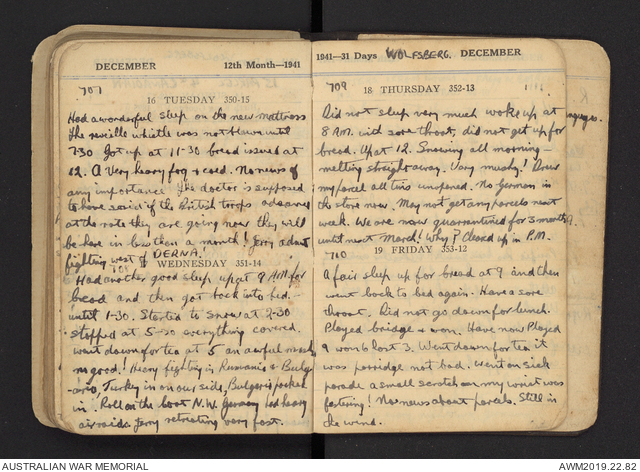 DECEMBER 12th Month—1941
707
16 TUESDAY 350-15
Had a wonderful sleep on the new mattress
The reveille whistle was not blown until
7-30. Got up at 11-30 bread issued at
12. A Very heavy fog & cold. No news of
any importance The doctor is supposed
to have said if the British troops advanced
at the rate they are going now they will
be here in less than a month! Jerry admit
fighting west of DERNA.
708
WEDNESDAY 351-14
Had another good sleep up at 9 A.M. for
bread and then got back into bed.
until 1-30. Started to snow at 2-30
stopped at 5-30 everything covered.
went down for tea at 5 an awful
no good! Heavy fighting in Rumania & Bulg-
-aria, Turkey in on our side, Bulgaria packed
in. Roll on the boat N.W. Germany had heavy
air raids Jerry retreating very fast.
1941—31 Days WOLFSBERG. DECEMBER
709
18 THURSDAY 352-13
Did not sleep very much woke up at
8 A.M. with sore throat, did not get up for
bread. Up at 12. Snowing all morning—
melting straight away. Very mushy! Drew
my parcel all tins unopened. No German in
the store now. May not get any parcels next
week. We are now quarantined for 3 months
until next March! Why? Cleared up in P.M.
19 FRIDAY 353-12
710
A fair sleep up for bread at 9 and then
went back to bed again. Have a sore
throat. Did not go down for lunch.
Played bridge & won. Have now Played
9 won 6 lost 3. Went down for tea it
was porridge not bad. Went on sick
parade a small scratch on my wrist was
festering! No news about parcels. Still in
the wind.
AUSTRALIAN WAR MEMORIAL AWM2019.22.82